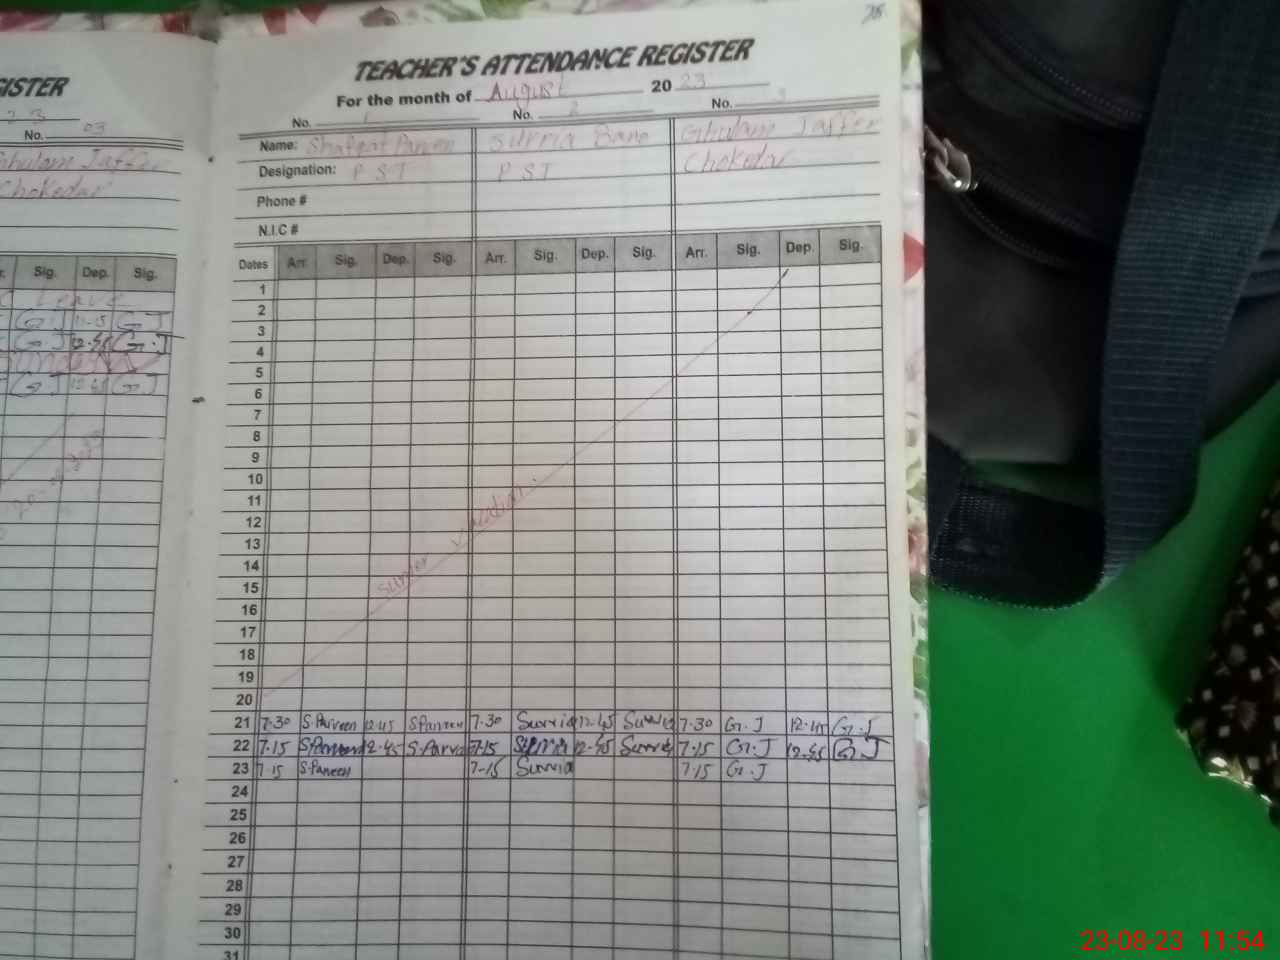 GISTER
23
No. 03
Ghulam Jaffer
Chokedar
Sig. Dep. Sig.
Leave
G.J 11-15 G.J
G.J 12.45 G.J
G.J 12.45 G.J
TEACHER'S ATTENDANCE REGISTER
For the month of August 2023
No. 1 No. 2 No. 3
Name: Shafqat Parveen Surria Bano Ghulam Jaffer
Designation: P S T P S T Chokedar
Phone #
N.I.C #
Dates Arr. Sig. Dep. Sig. Arr. Sig. Dep. Sig. Arr. Sig. Dep. Sig.
1
2
3
4
5
6
7
8
9
10
11
12
13
14
15
16
17
18
19
20
Summer Vacation.
21 7-30 S.Parveen 12-45 S.Parveen 7-30 Surria 12-45 Surria 7-30 G.J 12-45 G.J
22 7.15 S.Parveen 12-45 S.Parve 7-15 Surria 12-45 Surria 7.15 G.J 12.45 G.J
23 7.15 S.Parveen 7-15 Surria 7.15 G.J
24
25
26
27
28
29
30
31
23-08-23 11:54